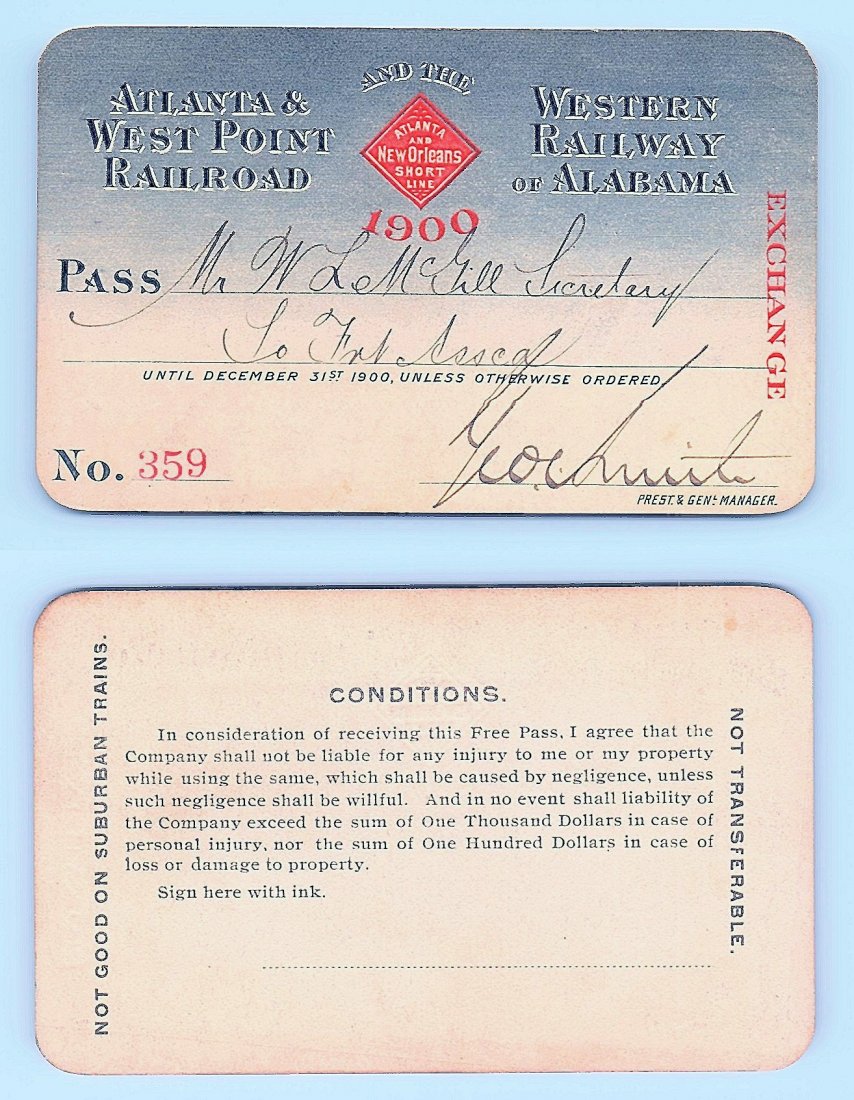 ATLANTA &
WEST POINT
RAILROAD
AND THE
ATLANTA
AND
NEW ORLEANS
SHORT
LINE
1900
WESTERN
RAILWAY
OF ALABAMA
EXCHANGE
PASS Mr W L McGill Secretary
So Frt Assca
UNTIL DECEMBER 31ST 1900, UNLESS OTHERWISE ORDERED
Geo. C. Smith
No. 359
PREST. & GENL. MANAGER.
NOT GOOD ON SUBURBAN TRAINS.
CONDITIONS.
In consideration of receiving this Free Pass, I agree that the
Company shall not be liable for any injury to me or my property
while using the same, which shall be caused by negligence, unless
such negligence shall be willful. And in no event shall liability of
the Company exceed the sum of One Thousand Dollars in case of
personal injury, nor the sum of One Hundred Dollars in case of
loss or damage to property.
Sign here with ink.
NOT TRANSFERABLE.